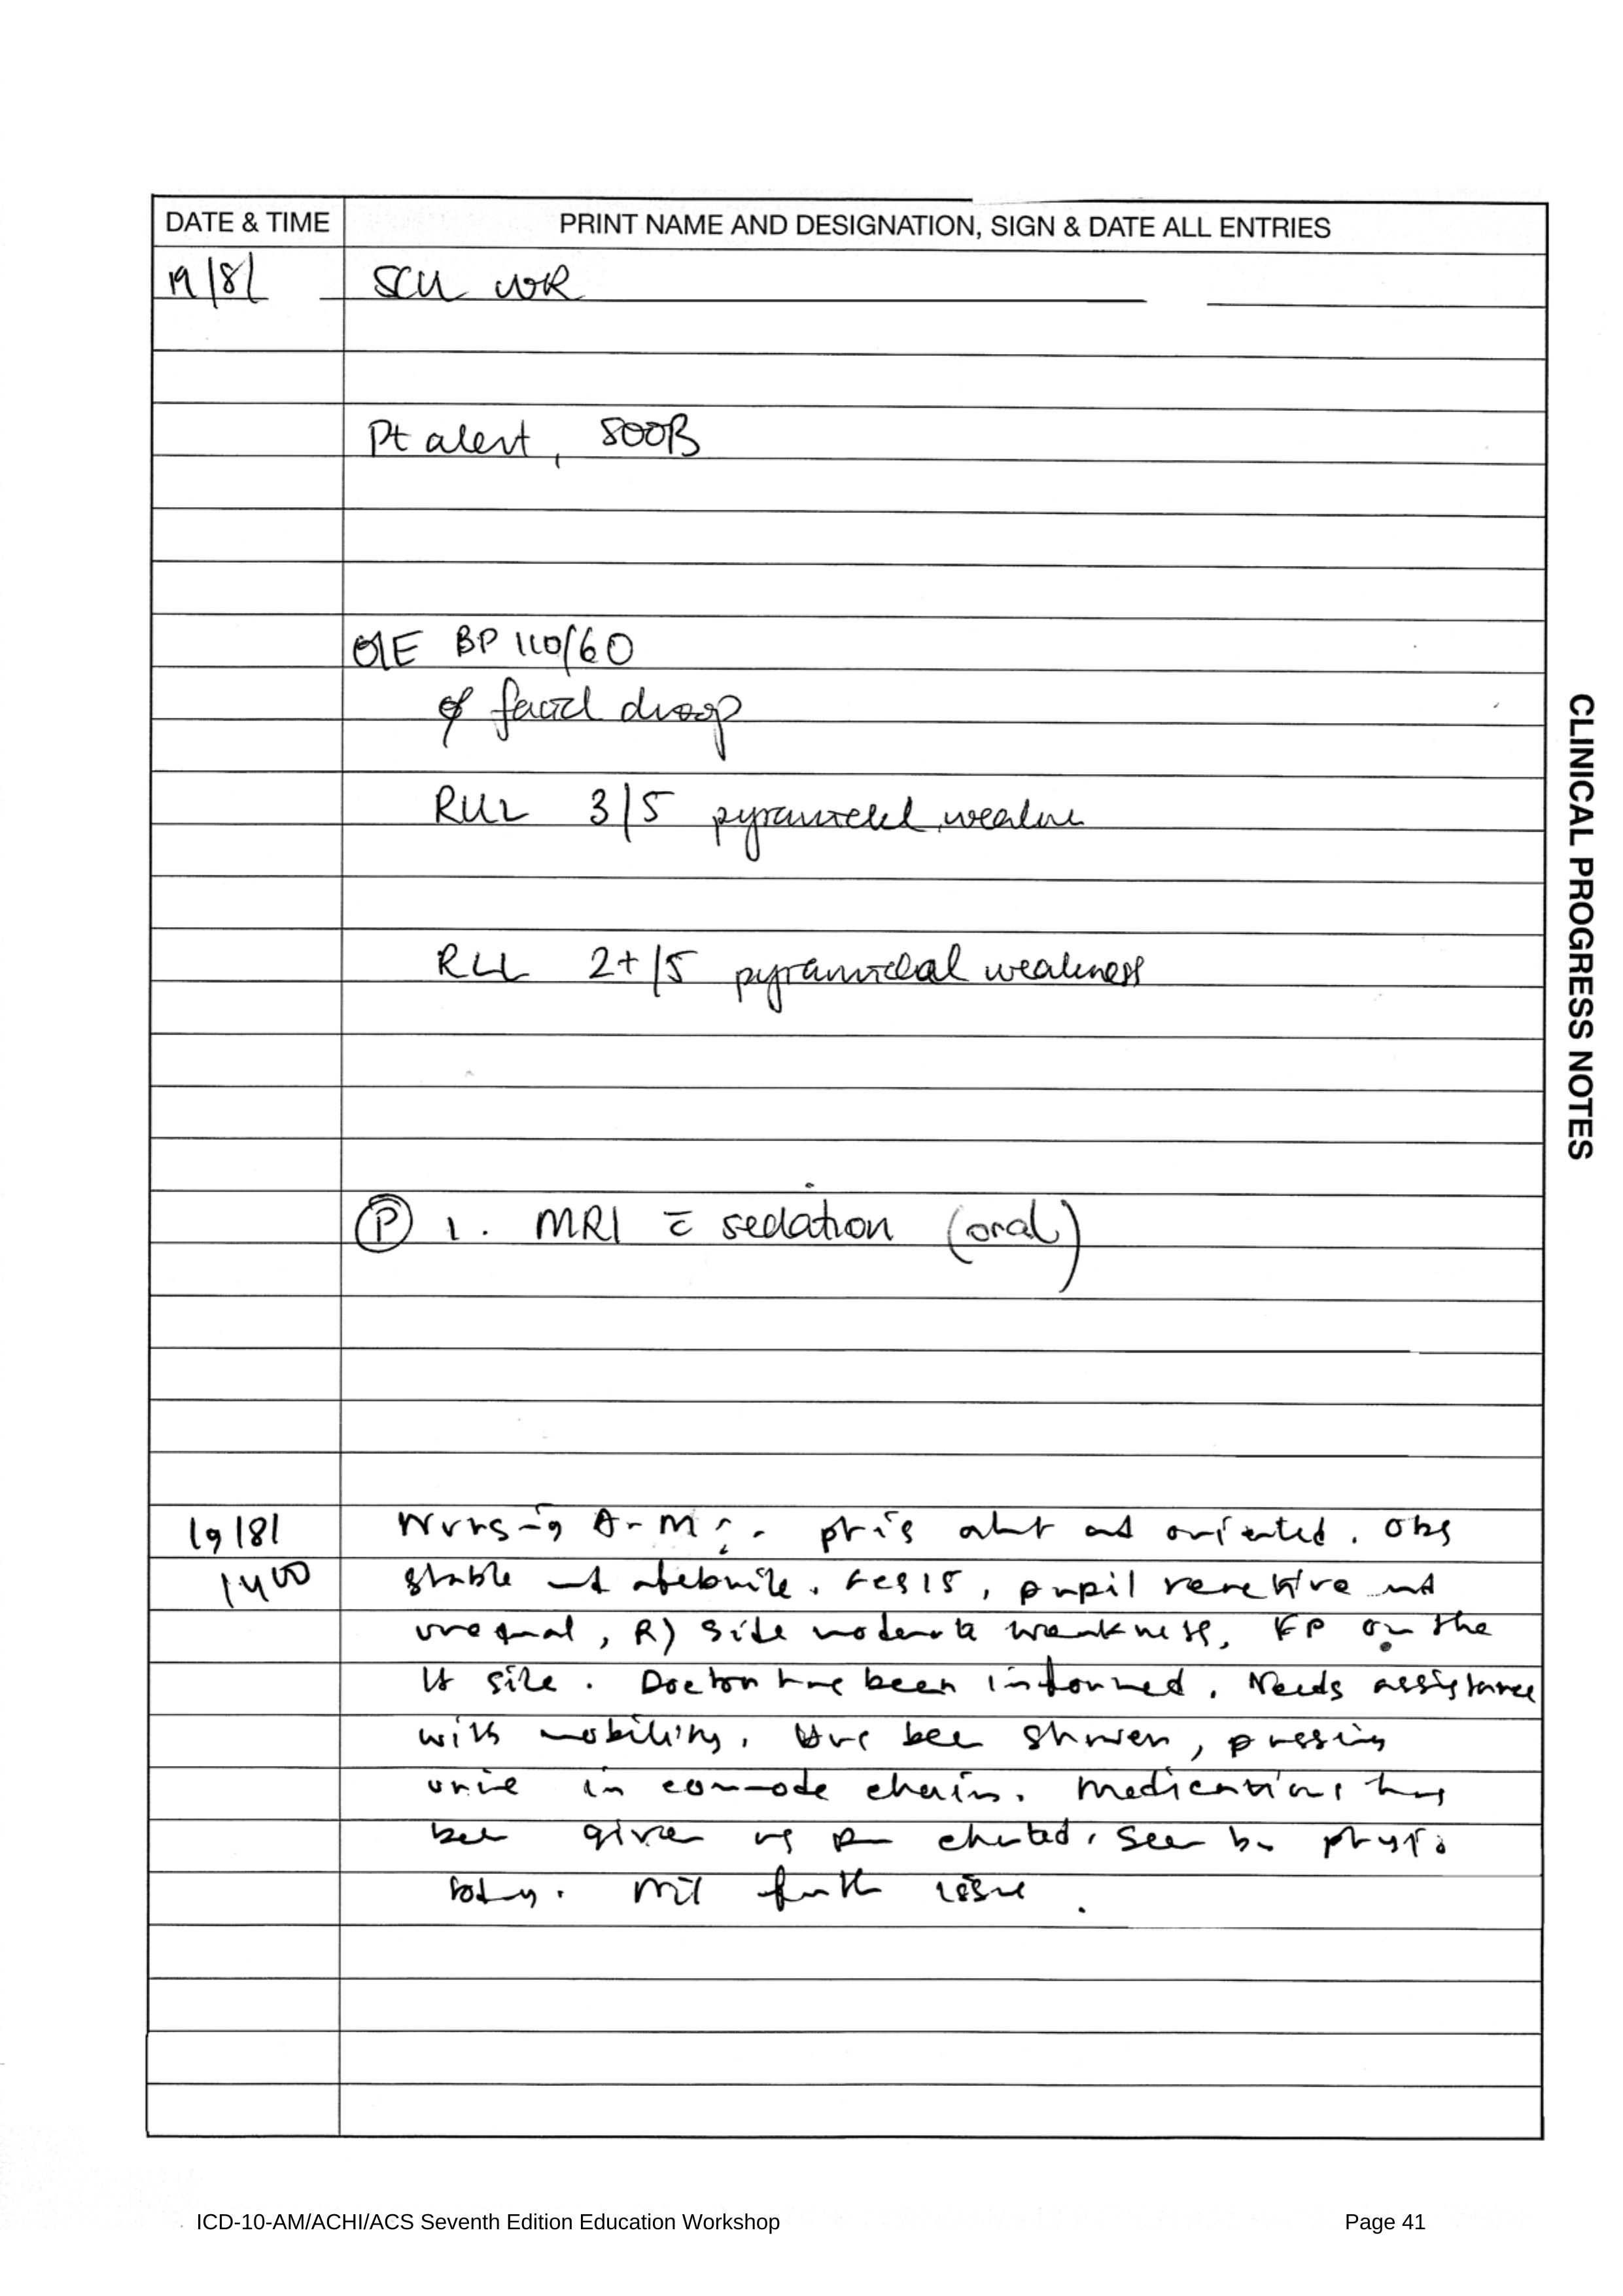 DATE & TIME PRINT NAME AND DESIGNATION, SIGN & DATE ALL ENTRIES
19/8/ SCU WR
Pt alert, SOOB
O/E BP 110/60
ø facial droop
RUL 3/5 pyramidal weakness
RLL 2+/5 pyramidal weakness
Ⓟ 1. MRI c̄ sedation (oral)
19/8/ Nursing A-M:- pt is alert and oriented. Obs
1400 stable and afebrile. GCS 15, pupil reactive and
unequal, R) side moderate weakness. FP on the
lt side. Doctor have been informed. Needs assistance
with mobility. Have been shower, passing
urine in commode chair. Medications has
been given as charted. Seen by physio
today. Nil further issue.
CLINICAL PROGRESS NOTES
ICD-10-AM/ACHI/ACS Seventh Edition Education Workshop Page 41